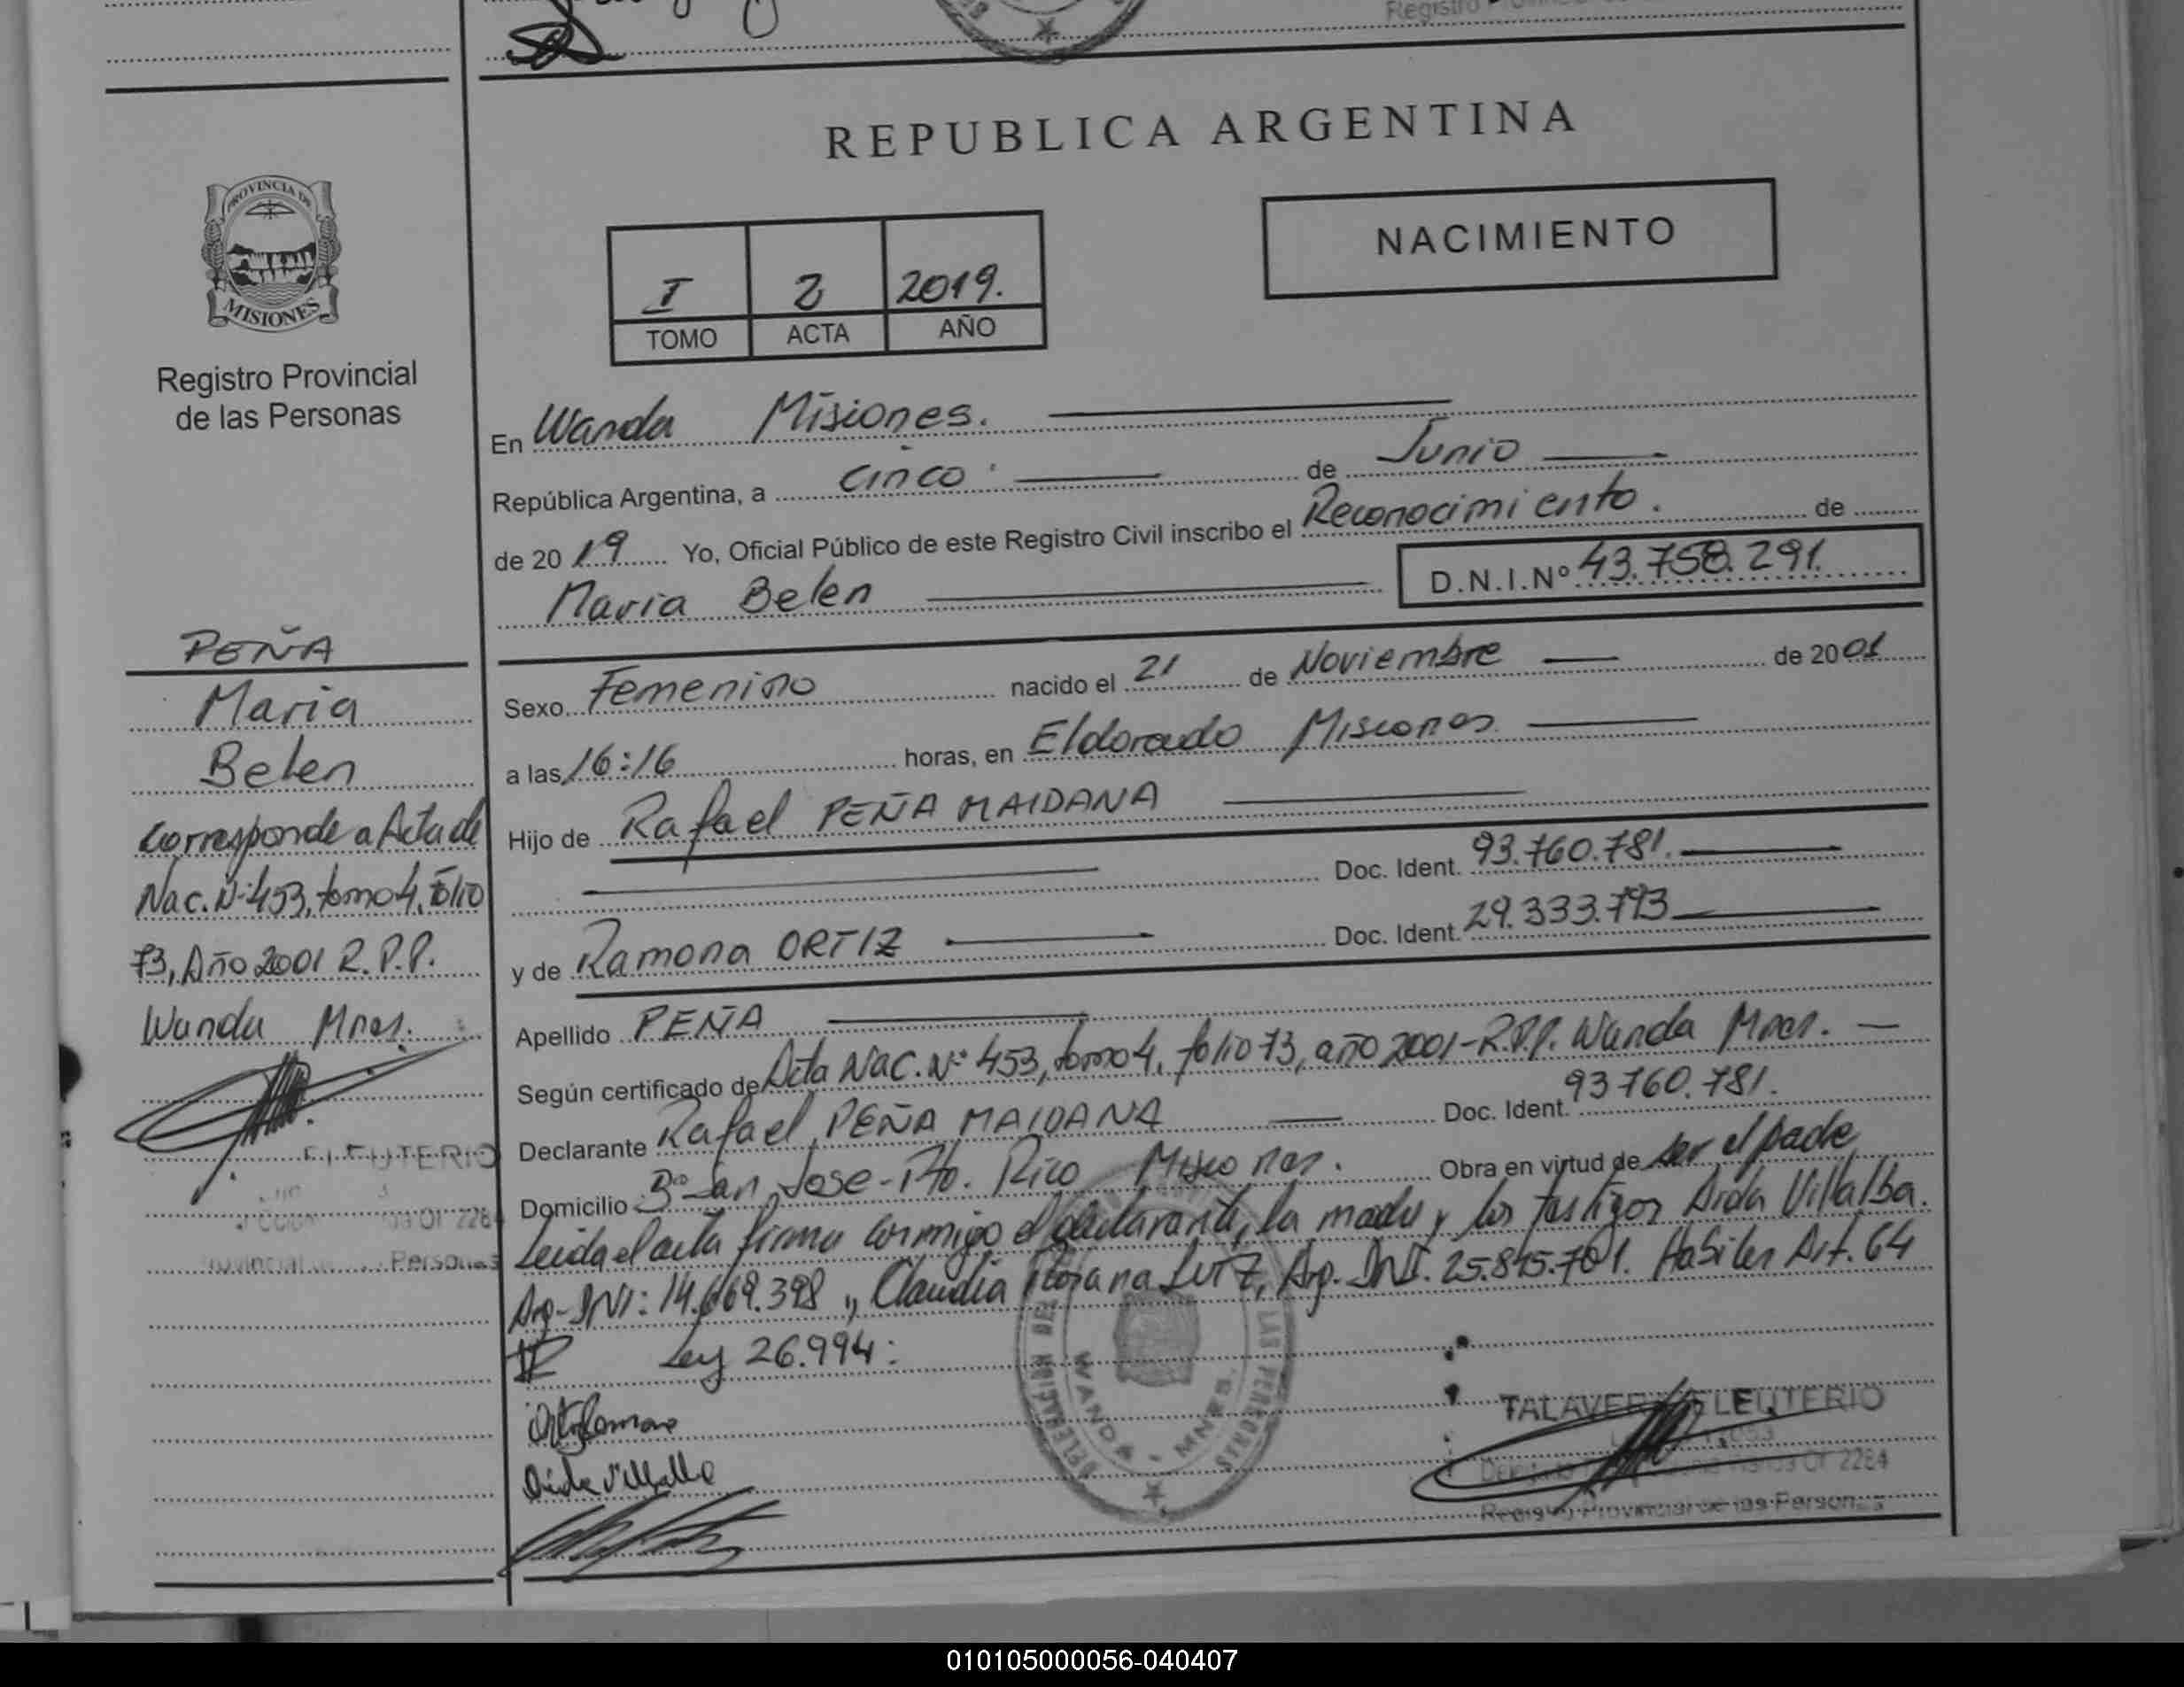 Registro
REPUBLICA ARGENTINA
PROVINCIA DE
MISIONES
Registro Provincial
de las Personas
NACIMIENTO
I 2 2019.
TOMO ACTA AÑO
En Wanda Misiones.
República Argentina, a cinco de Junio
de 2019 Yo, Oficial Público de este Registro Civil inscribo el Reconocimiento. de
Maria Belen D.N.I.Nº 43.758.291.
PEÑA
Maria
Belen
Corresponde a Acta de
Nac. Nº 453, tomo 4, folio
73, Año 2001 R.P.P.
Wanda Mnes.
ELEUTERIO
Sexo Femenino nacido el 21 de Noviembre de 2001
a las 16:16 horas, en Eldorado Misiones
Hijo de Rafael PEÑA MAIDANA
Doc. Ident. 93.760.781.
y de Ramona ORTIZ Doc. Ident. 29.333.793
Apellido PEÑA
Según certificado de Acta Nac. Nº 453, tomo 4, folio 73, año 2001-R.P.P. Wanda Mnes.
Declarante Rafael PEÑA MAIDANA Doc. Ident. 93760.781.
Domicilio Bº San Jose-Pto. Rico Misiones. Obra en virtud de ser el padre
Leida el acta firma conmigo el declarante, la madre y los testigos Aida Villalba.
Arg-DNI: 14.669.398, Claudia Rosana Arg. DNI. 25.845.701. Habiles Art. 64
Ley 26.994:
WANDA - MNES.
LAS PERSONAS
TALAVERA ELEUTERIO
Of 2284
Registro Provincial de las Personas
010105000056-040407